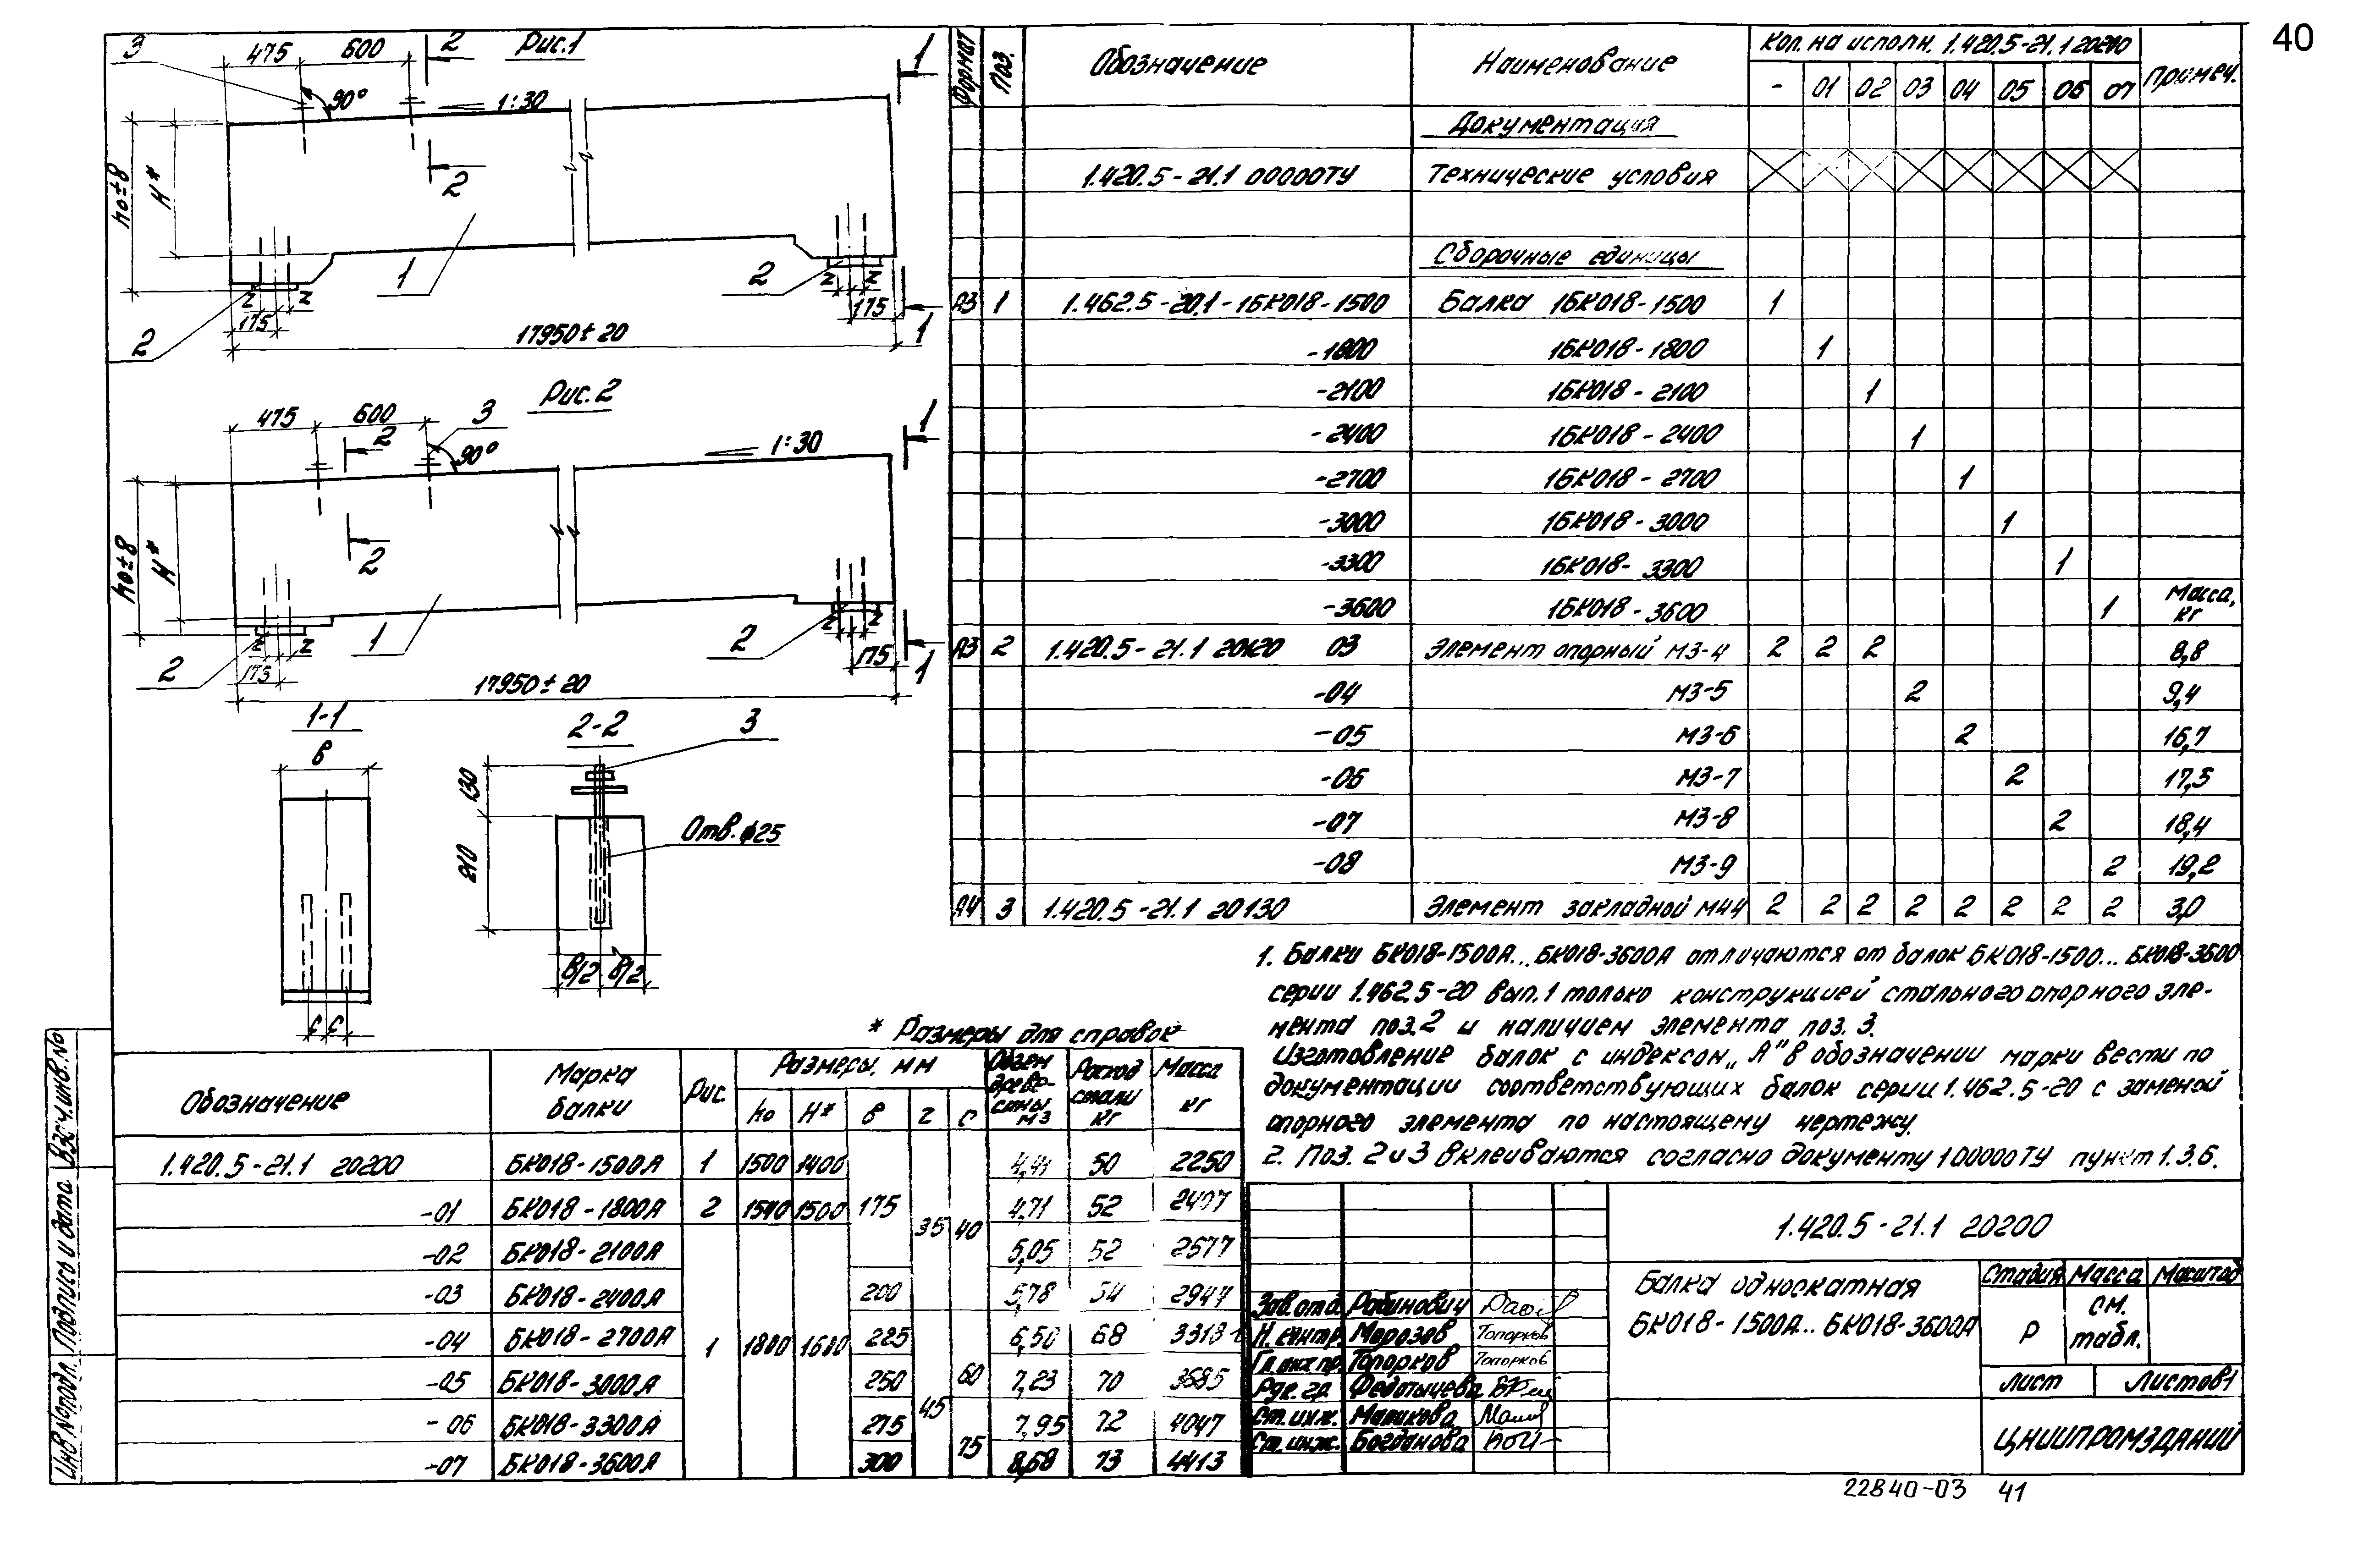 40
3 475 600 2 Рис.1 1
90° 1:30
h0±8 H* 2
1 2
z z z z
175 175
2 17950±20 1
Рис.2
475 600 3 1
2 90° 1:30
h0±8 H* 2
1 2
z z z z
2 175 175
17950±20 1
1-1 2-2 3
В
130
210 Отв.ф25
В/2 В/2
с с
Формат Поз. Обозначение Наименование Кол. на исполн. 1.420.5-21.1 20200 Примеч.
- 01 02 03 04 05 06 07
Документация
1.420.5-21.1 00000ТУ Технические условия
Сборочные единицы
А3 1 1.462.5-20.1-1БК018-1500 Балка 1БК018-1500 1
-1800 1БК018-1800 1
-2100 1БК018-2100 1
-2400 1БК018-2400 1
-2700 1БК018-2700 1
-3000 1БК018-3000 1
-3300 1БК018-3300 1
-3600 1БК018-3600 1 Масса, кг
А3 2 1.420.5-21.1 20120 03 Элемент опорный М3-4 2 2 2 8,8
-04 М3-5 2 9,4
-05 М3-6 2 16,7
-06 М3-7 2 17,5
-07 М3-8 2 18,4
-08 М3-9 2 19,2
А4 3 1.420.5-21.1 20130 Элемент закладной М44 2 2 2 2 2 2 2 2 3,0
1. Балки БК018-1500А... БК018-3600А отличаются от балок БК018-1500... БК018-3600
серии 1.462.5-20 вып.1 только конструкцией стального опорного эле-
мента поз.2 и наличием элемента поз. 3.
Изготовление балок с индексом „А" в обозначении марки вести по
документации соответствующих балок серии 1.462.5-20 с заменой
опорного элемента по настоящему чертежу.
2. Поз. 2 и 3 вклеиваются согласно документу 100000ТУ пункт 1.3.6.
* Размеры для справок
Обозначение Марка балки Рис. Размеры, мм Объем древесины м3 Расход стали кг Масса кг
h0 H* В z с
1.420.5-21.1 20200 БК018-1500А 1 1500 1400 4,41 50 2250
-01 БК018-1800А 2 1590 1500 175 4,71 52 2407
35 40
-02 БК018-2100А 5,05 52 2577
-03 БК018-2400А 200 5,78 54 2947
-04 БК018-2700А 1 1800 1680 225 6,50 68 3318
-05 БК018-3000А 250 60 7,23 70 3685
45
-06 БК018-3300А 275 7,95 72 4047
75
-07 БК018-3600А 300 8,68 73 4413
1.420.5-21.1 20200
Балка односкатная
БК018-1500А... БК018-3600А
Стадия Масса Масштаб
Р см. табл.
Лист Листов 1
ЦНИИПРОМЗДАНИЙ
Зав.отд. Рабинович
Н. контр. Морозов Топорков
Гл.инж.пр. Топорков Топорков
Рук. гр. Федотычева
Ст. инж. Маликова
Ст. инж. Богданова
Инв № подл. Подпись и дата Взам.инв.№
22840-03 41